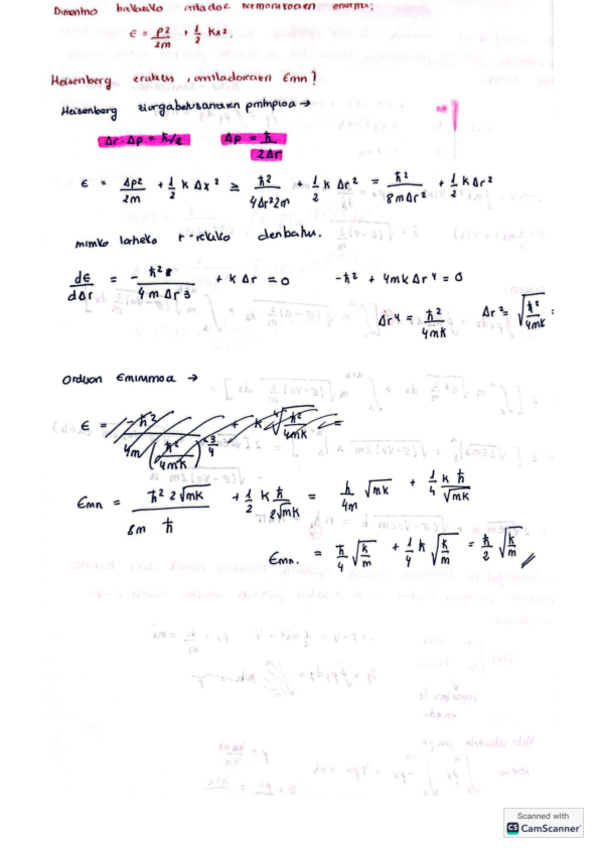 Dimentsio bakarreko osziladore harmonikoaren energia:
ε = p²/2m + 1/2 kx².
Heisenberg erabiliz, osziladorearen εmin?
Heisenberg ziurgabetasunaren printzipioa →
Δr·Δp = ħ/2   Δp = ħ/2Δr
ε = Δp²/2m + 1/2 k Δx² ≥ ħ²/4Δr²2m + 1/2 k Δr² = ħ²/8mΔr² + 1/2 kΔr²
minimo lortzeko r-rekiko deribatu.
dε/dΔr = - ħ²/4mΔr³ + kΔr = 0   -ħ² + 4mkΔr⁴ = 0
Δr⁴ = ħ²/4mk   Δr² = √ħ²/4mk
Orduan εminimoa →
εmin = ħ² 2√mk/8m ħ + 1/2 k ħ/2√mk = ħ/4m √mk + 1/4 k ħ/√mk
εmin. = ħ/4 √k/m + 1/4 ħ √k/m = ħ/2 √k/m
Scanned with
CS CamScanner